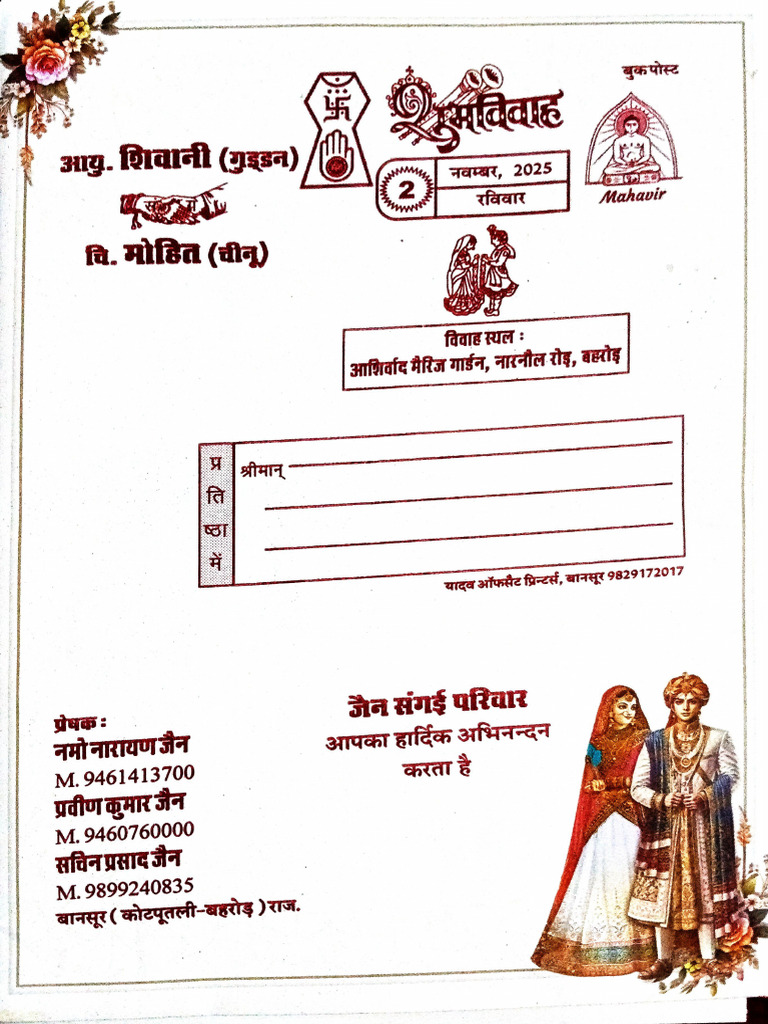 बुक पोस्ट
शुभविवाह
आयु. शिवानी (गुड्डन)
संग में
चि. मोहित (चीनू)
2
नवम्बर, 2025
रविवार
Mahavir
विवाह स्थल :
आशिर्वाद मैरिज गार्डन, नारनौल रोड़, बहरोड़
प्रतिष्ठा में
श्रीमान्
यादव ऑफसैट प्रिन्टर्स, बानसूर 9829172017
जैन संगई परिवार
आपका हार्दिक अभिनन्दन
करता है
प्रेषक :
नमो नारायण जैन
M. 9461413700
प्रवीण कुमार जैन
M. 9460760000
सचिन प्रसाद जैन
M. 9899240835
बानसूर ( कोटपूतली-बहरोड़ ) राज.